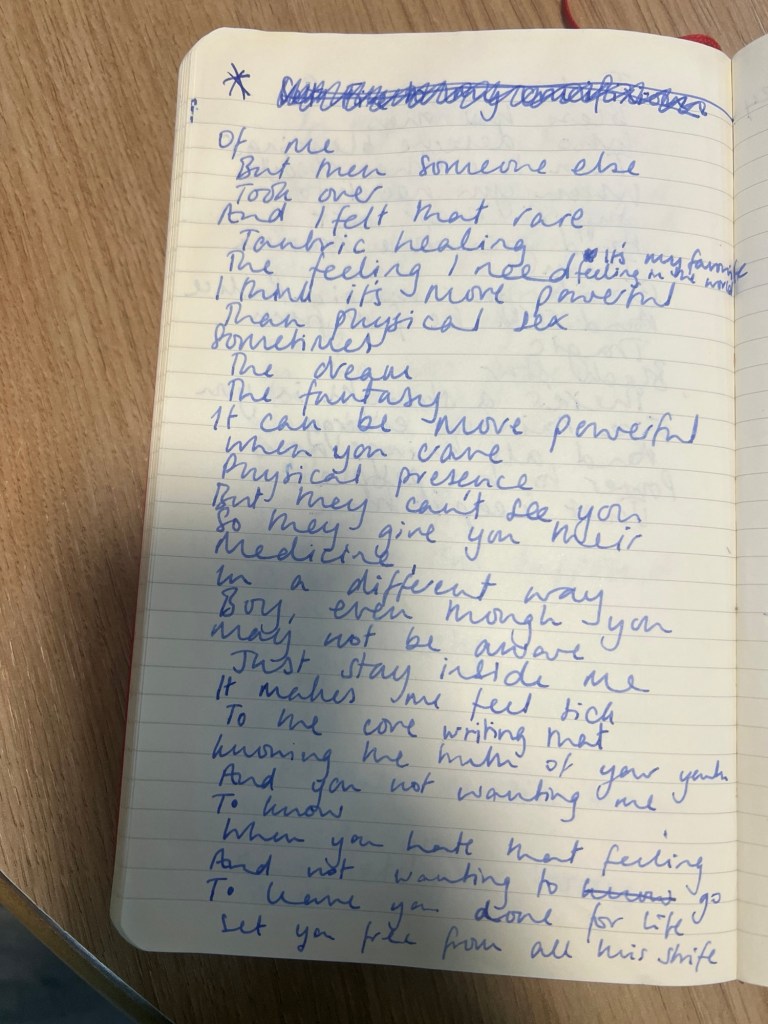 *
Of me
But then someone else
Took over
And I felt that rare
Tantric healing
The feeling I need
it's my favorite
feeling in the world
I think it's more powerful
Than physical sex
Sometimes
The dream
The fantasy
It can be more powerful
When you crave
Physical presence
But they can't see you
So they give you their
Medicine
In a different way
Boy, even though you
May not be aware
Just stay inside me
It makes me feel sick
To the core writing that
Knowing the truth of your youth
And you not wanting me
To know
When you hate that feeling
And not wanting to know go
To leave you done for life
Set you free from all this strife